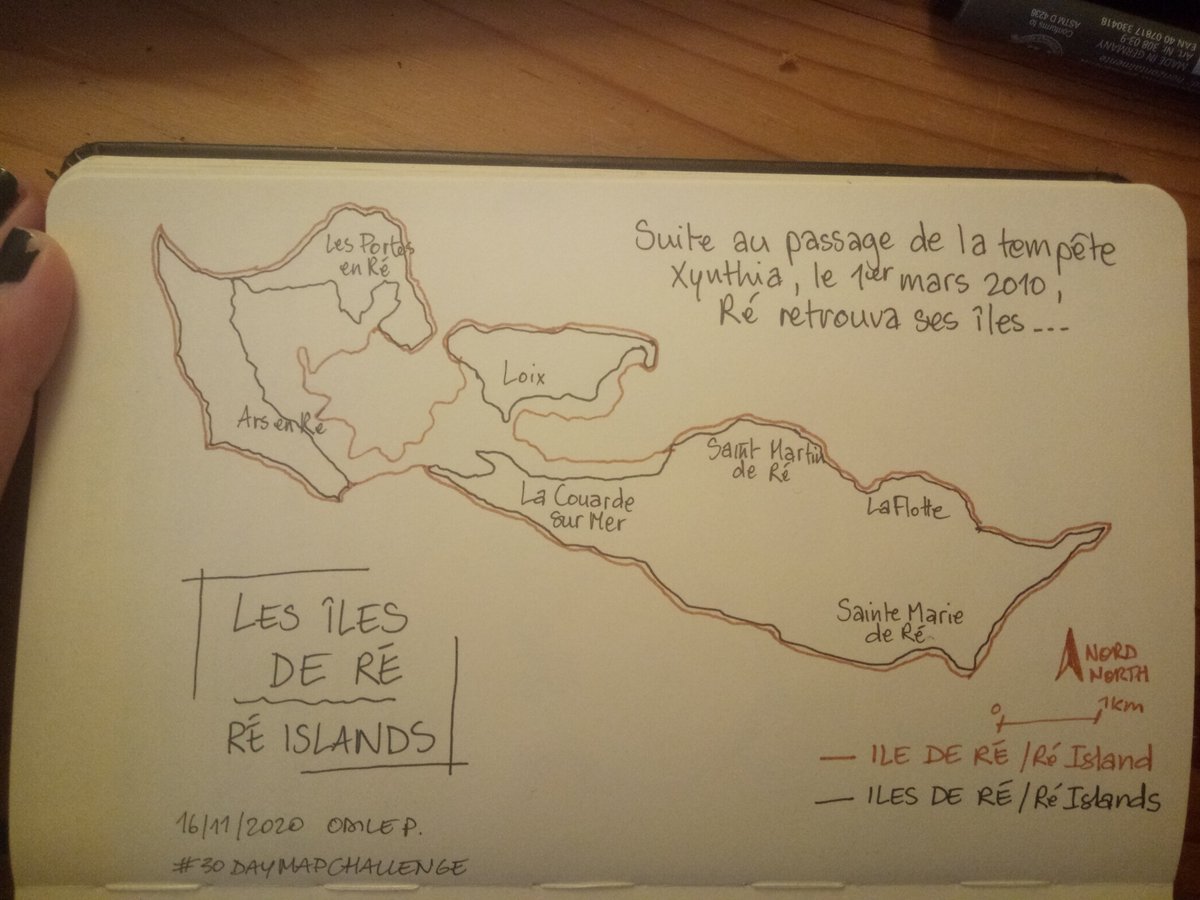 Conforms to
ASTM D 4236
EAN 40 07817 330418
Art. Nr. 308 03-9
MADE IN GERMANY
Les Portes
en Ré
Suite au passage de la tempête
Xynthia, le 1er mars 2010,
Ré retrouva ses îles...
Loix
Ars en Ré
Saint Martin
de Ré
La Couarde
sur Mer
La Flotte
Sainte Marie
de Ré
LES ÎLES
DE RÉ
RÉ ISLANDS
NORD
NORTH
0 1km
ILE DE RÉ / Ré Island
ILES DE RÉ / Ré Islands
16/11/2020 ODILE P.
#30DAYMAPCHALLENGE